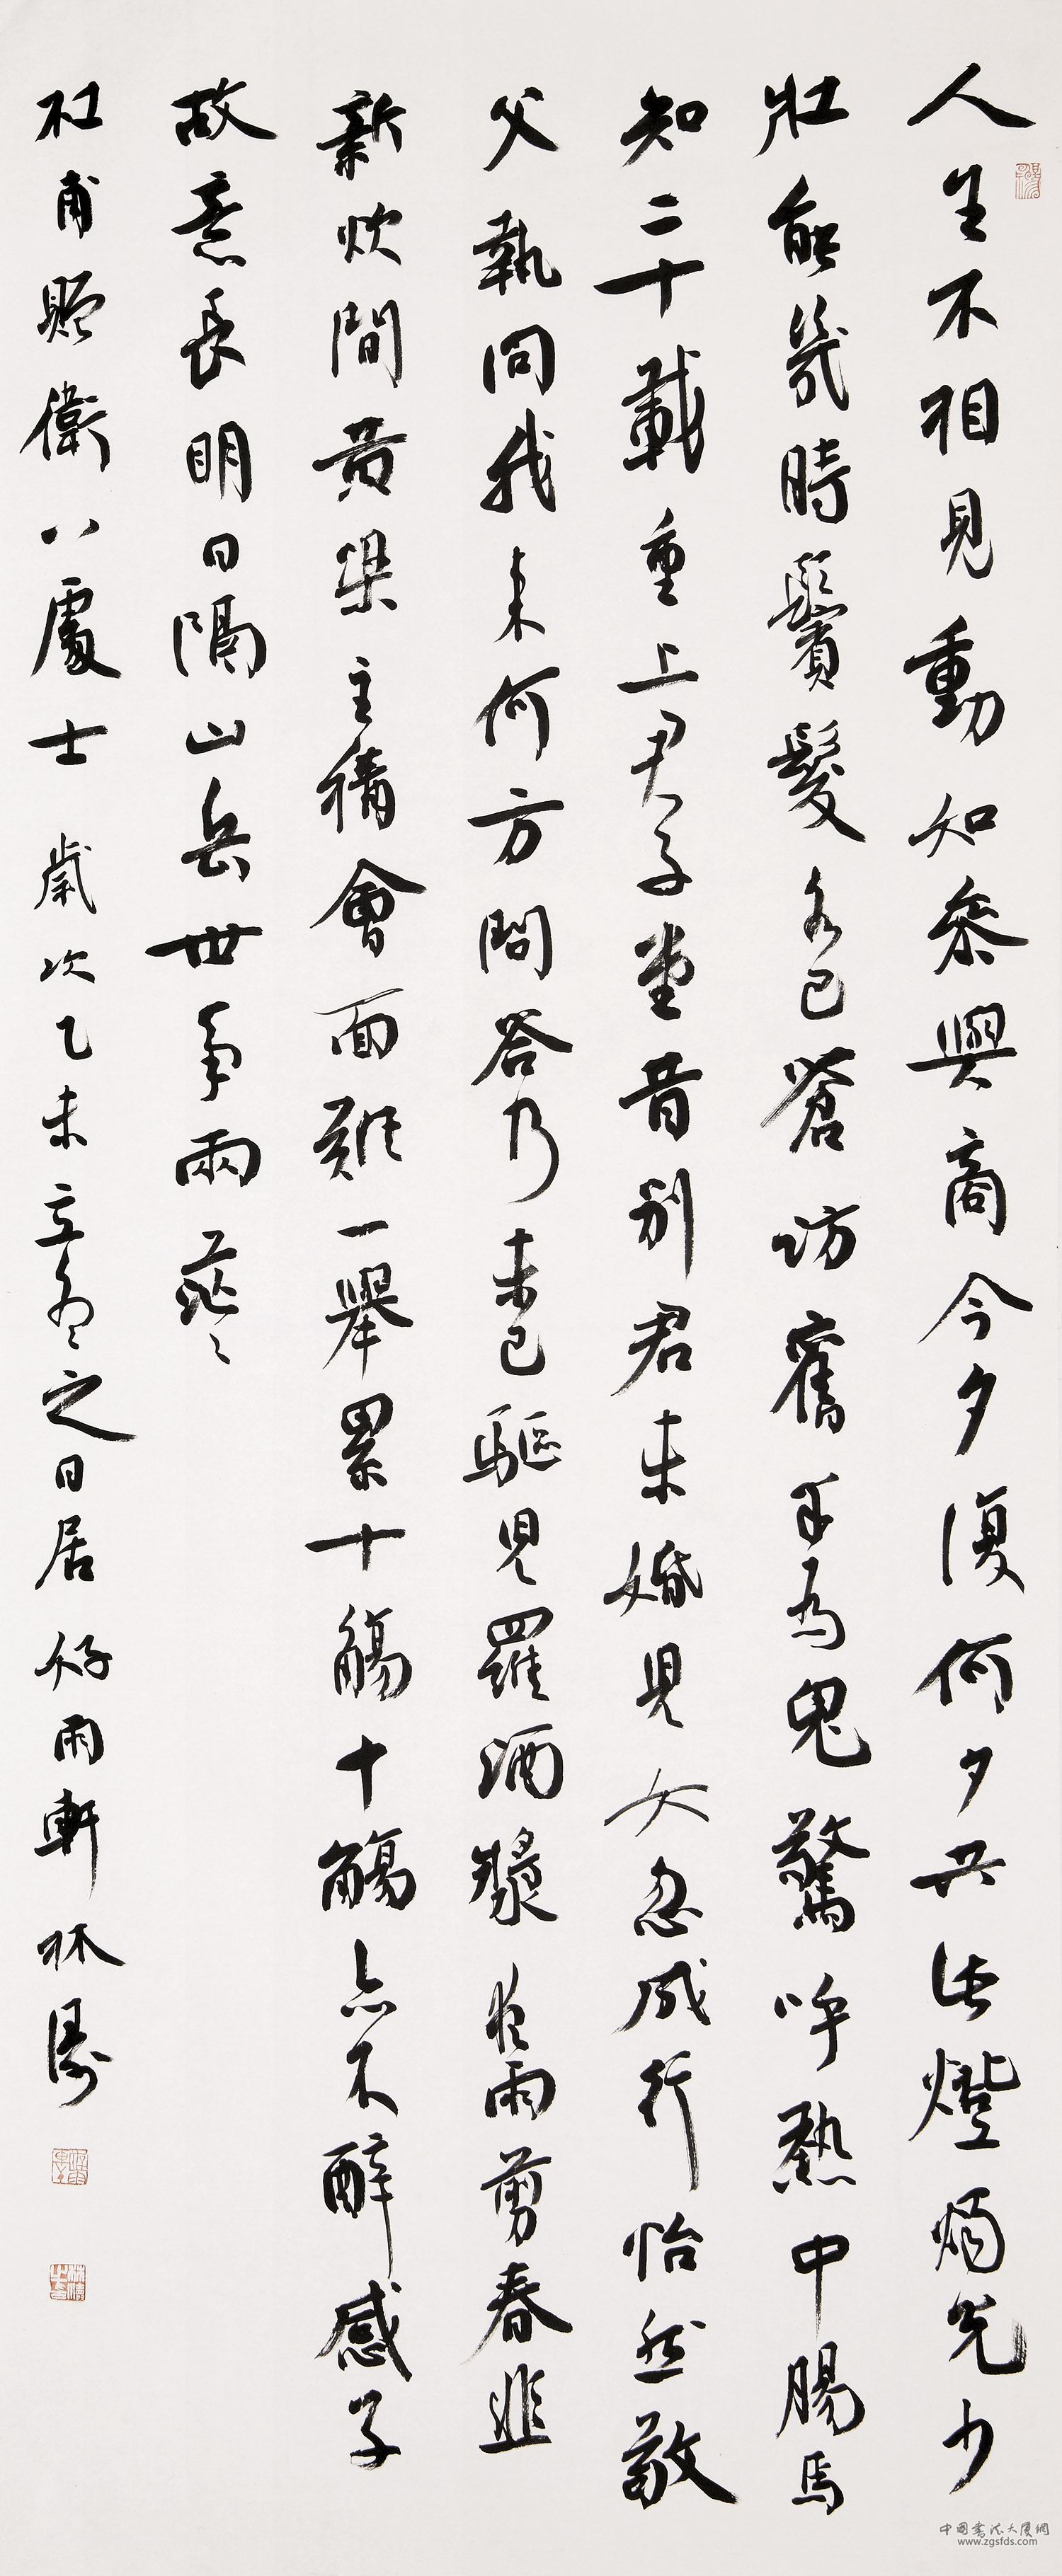 人生不相見動如參與商今夕復何夕共此燈燭光少
壯能幾時鬢髮各已蒼訪舊半為鬼驚呼熱中腸焉
知二十載重上君子堂昔別君未婚兒女忽成行怡然敬
父執問我來何方問答乃未已驅兒羅酒漿夜雨剪春韭
新炊間黃粱主稱會面難一舉累十觴十觴亦不醉感子
故意長明日隔山岳世事兩茫々
杜甫贈衛八處士 歲次乙未立之日居好雨軒林濤
中国書法大厦網
www.zgsfds.com